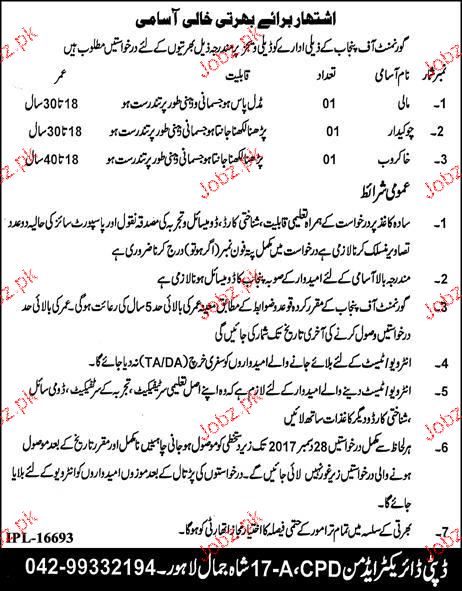 اشتہار برائے بھرتی خالی آسامی
گورنمنٹ آف پنجاب کے ذیلی ادارے کو ڈیلی ویجز پر مندرجہ ذیل بھرتیوں کے لئے درخواستیں مطلوب ہیں
نمبر شمار نام آسامی تعداد قابلیت عمر
1- مالی 01 مڈل پاس ہو جسمانی و ذہنی طور پر تندرست ہو 18 تا 30 سال
2- چوکیدار 01 پڑھنا لکھنا جانتا ہو جسمانی و ذہنی طور پر تندرست ہو 18 تا 30 سال
3- خاکروب 01 پڑھنا لکھنا جانتا ہو جسمانی و ذہنی طور پر تندرست ہو 18 تا 40 سال
عمومی شرائط
1- سادہ کاغذ پر درخواست کے ہمراہ تعلیمی قابلیت، شناختی کارڈ، ڈومیسائل و تجربہ کی مصدقہ نقول اور پاسپورٹ سائز کی حالیہ دو عدد
تصاویر منسلک کرنا لازمی ہے درخواست میں مکمل پتہ فون نمبر (اگر ہو تو) درج کرنا ضروری ہے
2- مندرجہ بالا آسامی کے لئے امیدوار کے صوبہ پنجاب کا ڈومیسائل ہونا لازمی ہے
3- گورنمنٹ آف پنجاب کے مقرر کردہ قوعد و ضوابط کے مطابق معینہ عمر کی بالائی حد 5 سال کی رعائت ہو گی۔ عمر کی بالائی حد
درخواستیں وصول کرنے کی آخری تاریخ تک شمار کی جائیں گی
4- انٹرویو/ٹیسٹ کے لئے بلائے جانے والے امیدواروں کو سفری خرچ (TA/DA) نہ دیا جائے گا۔
5- انٹرویو/ٹیسٹ دینے والے امیدوار کے لئے لازم ہے کہ وہ اپنے اصل تعلیمی سرٹیفکیٹ، تجربہ کے سرٹیفکیٹ، ڈومی سائل
، شناختی کارڈ و دیگر کاغذات ساتھ لائیں
6- ہر لحاظ سے مکمل درخواستیں 28 دسمبر 2017 تک زیر دستخطی کو موصول ہو جانی چاہئیں نامکمل اور مقرر تاریخ کے بعد موصول
ہونے والی درخواستیں زیر غور نہیں لائی جائیں گی۔ درخواستوں کی پڑتال کے بعد موزوں امیدواروں کو انٹرویو کے لئے بلایا
جائے گا
7- بھرتی کے سلسلہ میں تمام تر امور کے حتمی فیصلہ کا اختیار مجاز اتھارٹی کو ہو گا۔
IPL-16693
ڈپٹی ڈائریکٹر ایڈمن CPD، 17-A شاہ جمال لاہور۔ 042-99332194
Jobz.pk